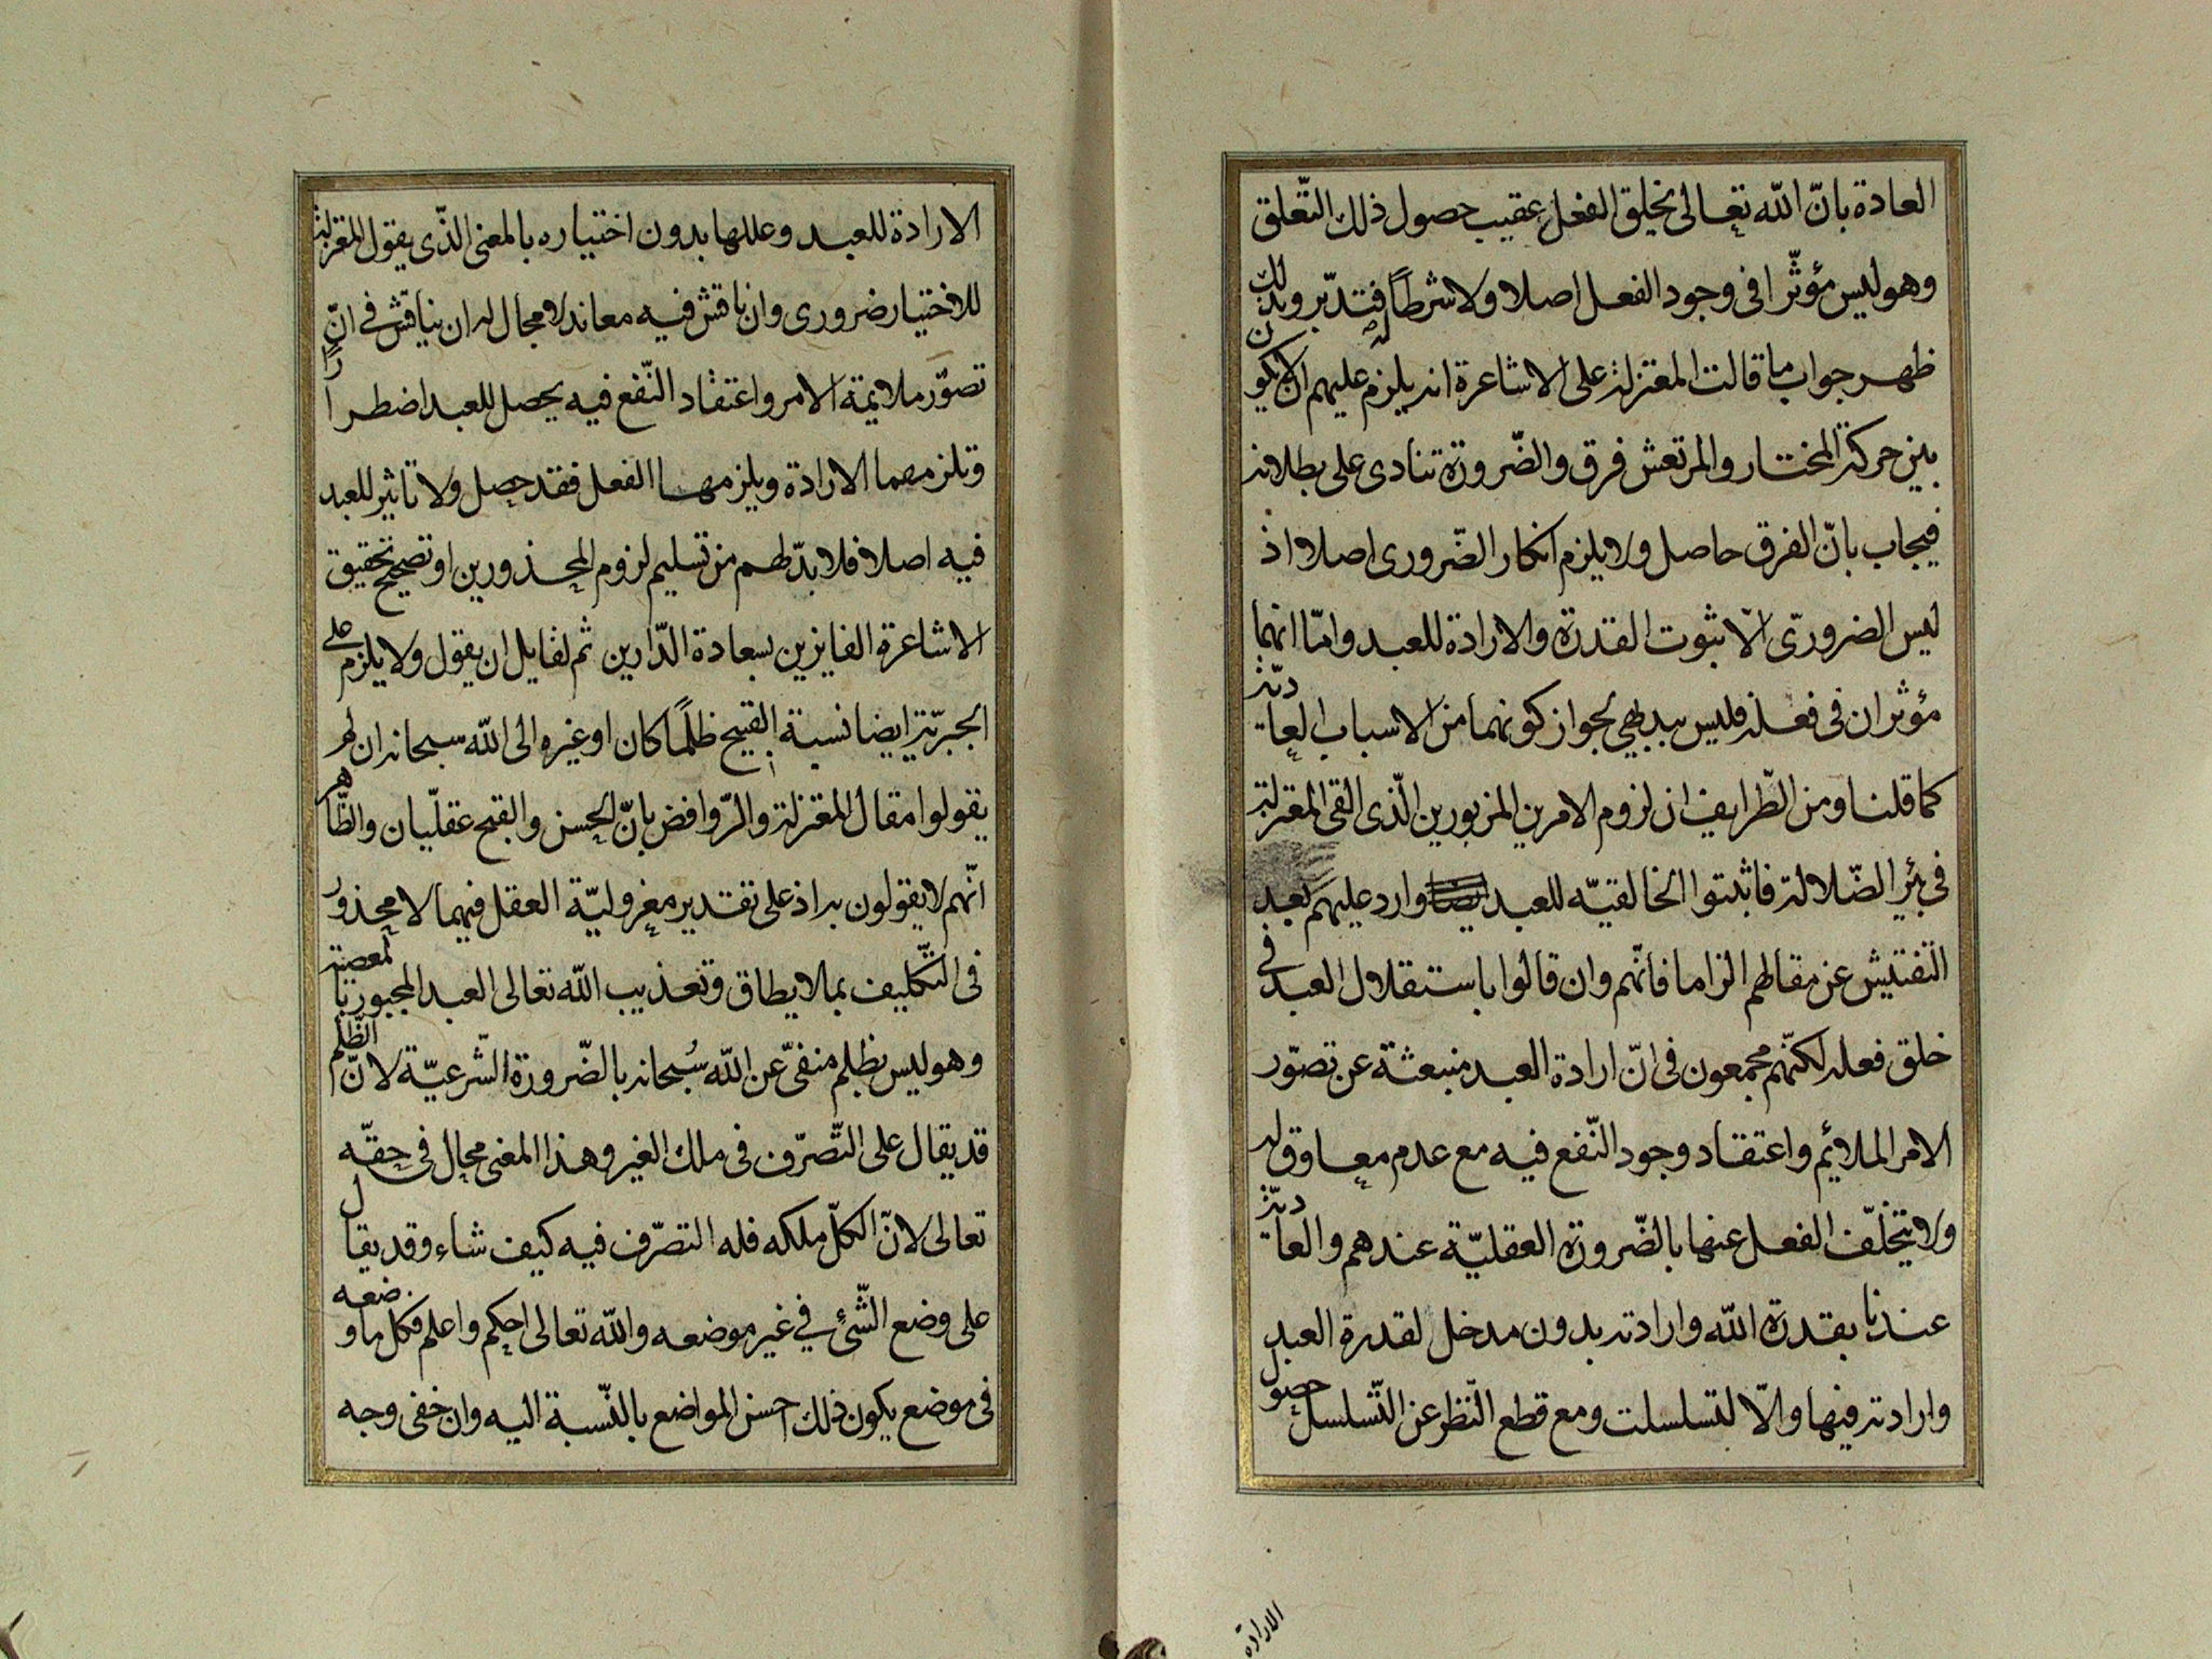 العادة بانّ اللّه تعالى يخلق الفعل عقيب حصول ذلك التّعلق
وهو ليس مؤثّرا فى وجود الفعل اصلا ولا شرطاً له فتدبّر وبذلك
ظهر جواب ما قالت المعتزلة على الاشاعرة انه يلزم عليهم ان لا يكون
بين حركة المختار والمرتعش فرق والضّرورة تنادى على بطلانه
فيجاب بانّ الفرق حاصل ولا يلزم انكار الضّرورى اصلا اذ
ليس الضرورىّ الّا ثبوت القدرة والارادة للعبد وامّا انهما
مؤثران فى فعله فليس ببديهي لجواز كونهما من الاسباب العاديّة
كما قلنا ومن الطّرايف ان لزوم الامرين المزبورين الّذى القى المعتزلة
فى بئر الضّلالة فاثبتوا الخالقيّه للعبد وارد عليهم بعد
التفتيش عن مقالهم الزاما فانّهم وان قالوا باستقلال العبد فى
خلق فعله لكنّهم مجمعون فى انّ ارادة العبد منبعثة عن تصوّر
الامر الملائم واعتقاد وجود النّفع فيه مع عدم معاوق له
ولا يتخلّف الفعل عنها بالضّرورة العقليّة عندهم والعاديّة
عندنا بقدرة اللّه وارادته بدون مدخل لقدرة العبد
وارادته فيها والّا لتسلسلت ومع قطع النّظر عن التّسلسل حصول
الارادة
الارادة للعبد وعللها بدون اختياره بالمعنى الذّى يقول المعتزلة
للاختيار ضرورى وان ناقش فيه معاند لا مجال له ان يناقش فى انّ
تصوّر ملايمة الامر واعتقاد النّفع فيه يحصل للعبد اضطرارًا
وتلزمهما الارادة ويلزمها الفعل فقد حصل ولا تاثير للعبد
فيه اصلا فلا بدّ لهم من تسليم لزوم المحذورين او تصحيح تحقيق
الاشاعرة الفايزين بسعادة الدّارين ثم لقايل ان يقول ولا يلزم على
الجبريّة ايضا نسبة القبيح ظلمًا كان او غيره الى اللّه سبحانه ان لم
يقولوا مقال المعتزلة والرّوافض بانّ الحسن والقبح عقليّان والظّاهر
انّهم لا يقولون به اذ على تقدير معزوليّة العقل فيهما لا محذور
فى التّكليف بما لا يطاق وتعذيب اللّه تعالى العبد المجبور بالمعصية
وهو ليس بظلم منفىّ عن اللّه سُبحانه بالضّرورة الشّرعيّة لانّ الظّلم
قد يقال على التّصرّف فى ملك الغير وهذا المعنى محال فى حقّه
تعالى لانّ الكلّ ملكه فله التصرّف فيه كيف شاء وقد يقال
على وضع الشّئ في غير موضعه واللّه تعالى احكم واعلم فكل ما وضعه
فى موضع يكون ذلك احسن المواضع بالنّسبة اليه وان خفى وجه